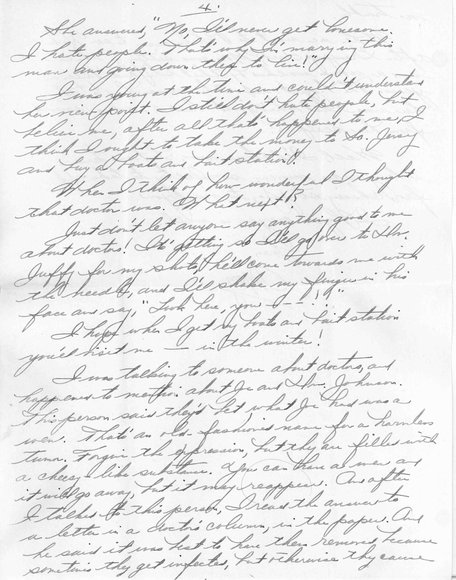 4.
She answered, "No, I'll never get lonesome.
I hate people. That's why I'm marrying this
man and going down there to live!"
I was young at the time and couldn't understand
her view point. I still don't hate people, but
believe me, after all that's happened to me, I
think I ought to take the money to So. Jersey
and buy a boats and bait station!
When I think of how wonderful I thought
that doctor was. What next?
Just don't let anyone say anything good to me
about doctors! I'm getting so I'll go over to Dr.
Duffy for my shots, he'll come towards me with
the needle, and I'll shake my finger in his
face and say, "Look here, you - - ! ! "
I hope when I get my boats and bait station
you'll visit me — in the winter!
I was talking to someone about doctors, and
happened to mention about Jo and Dr. Johnson.
This person said they'd bet what Jo had was a
wen. That's an old-fashioned name for a harmless
tumor. Forgive the expression, but they are filled with
a cheesy-like substance. You can have a wen and
it will go away, but it may reappear. And after
I talked to this person, I read the answer to
a letter in a doctor's column, in the paper. And
he said it was best to have them removed, because
sometimes they get infected, but otherwise they cause